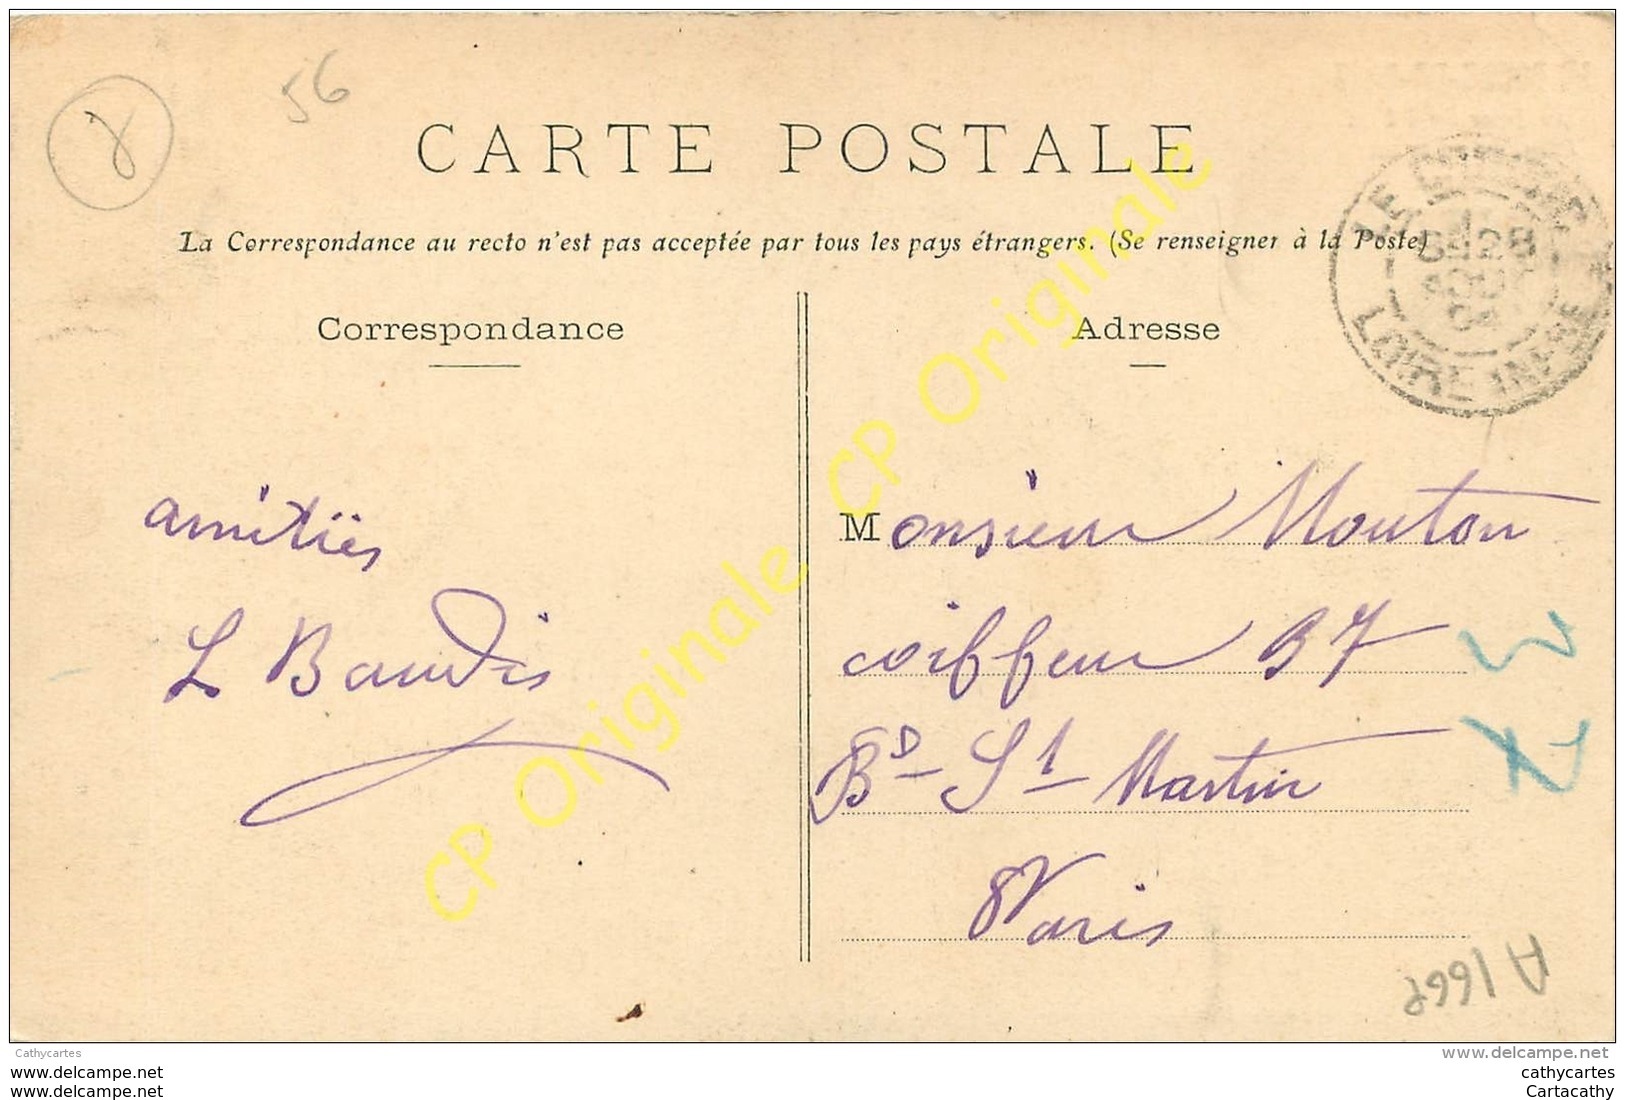 56
CARTE POSTALE
La Correspondance au recto n'est pas acceptée par tous les pays étrangers. (Se renseigner à la Poste)
Correspondance
amitiés
L Baudis
Adresse
Monsieur Mouton
coiffeur 37
Bd St Martin
Paris
LE
LOIRE INFRE
A1668
CP Originale
CP Originale
Cathycartes
www.delcampe.net
www.delcampe.net
www.delcampe.net
cathycartes
Cartacathy